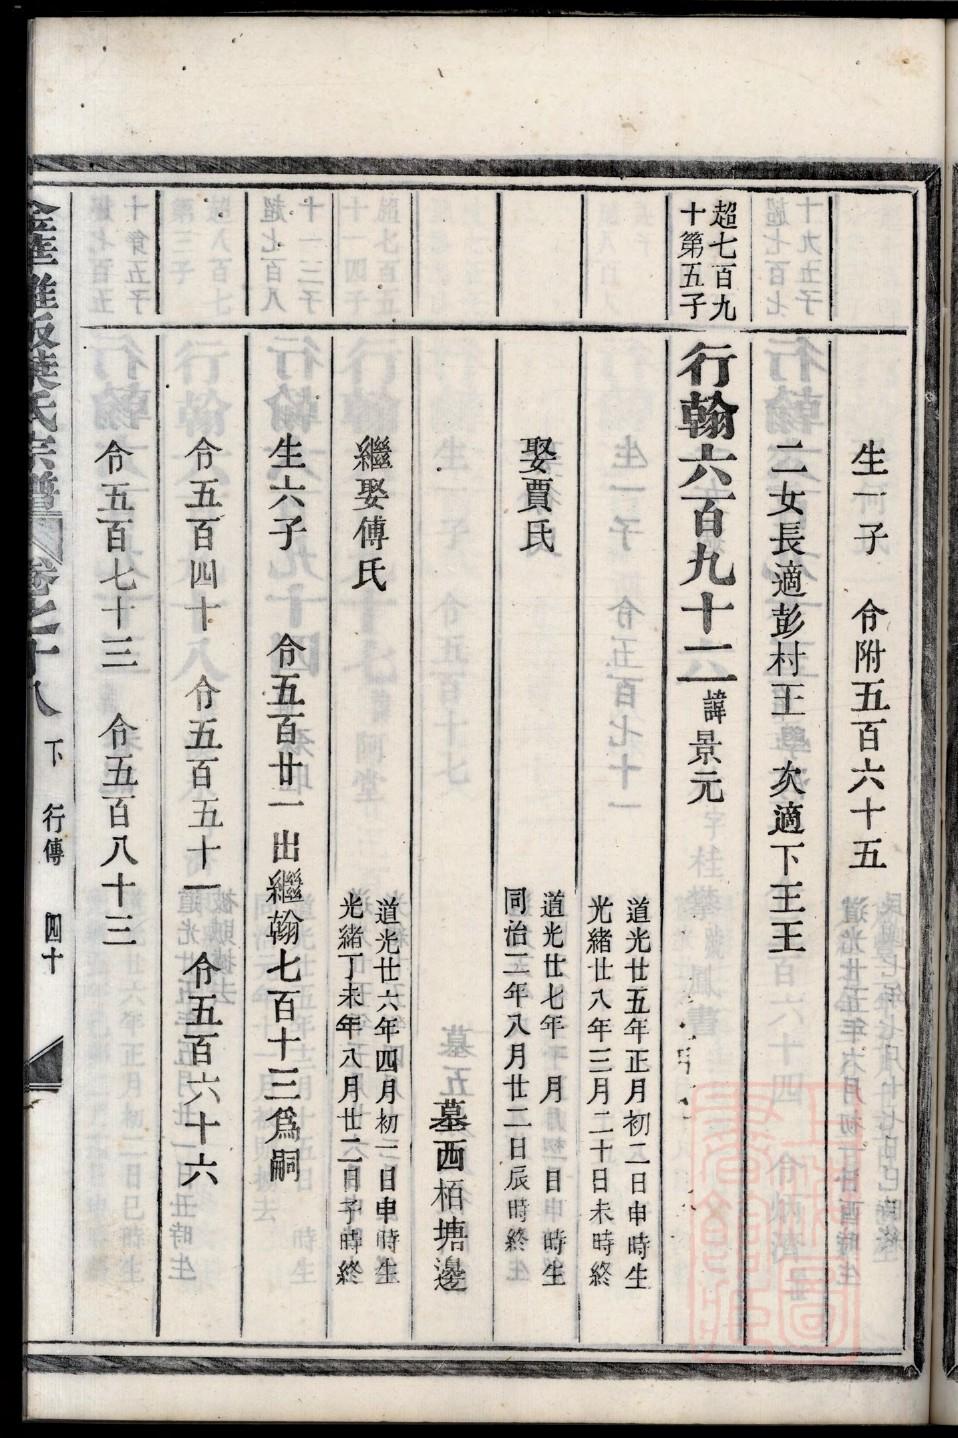 生一子　令附五百六十五
二女長適彭村王　次適下王王
超七百九
十第五子
行翰六百九十二　諱景元
道光廿五年正月初二日申時生
光緒廿八年三月二十日未時終
娶賈氏
道光廿七年　月　日　時生
同治三年八月廿二日辰時終
墓西栢塘邊
繼娶傅氏
道光廿六年四月初三日申時生
光緒丁未年八月廿二日子時終
生六子　令五百廿一　出繼翰七百十三爲嗣
令五百四十　令五百五十一　令五百六十六
令五百七十三　令五百八十三
葉氏宗譜　卷之十八　下　行傳　四十